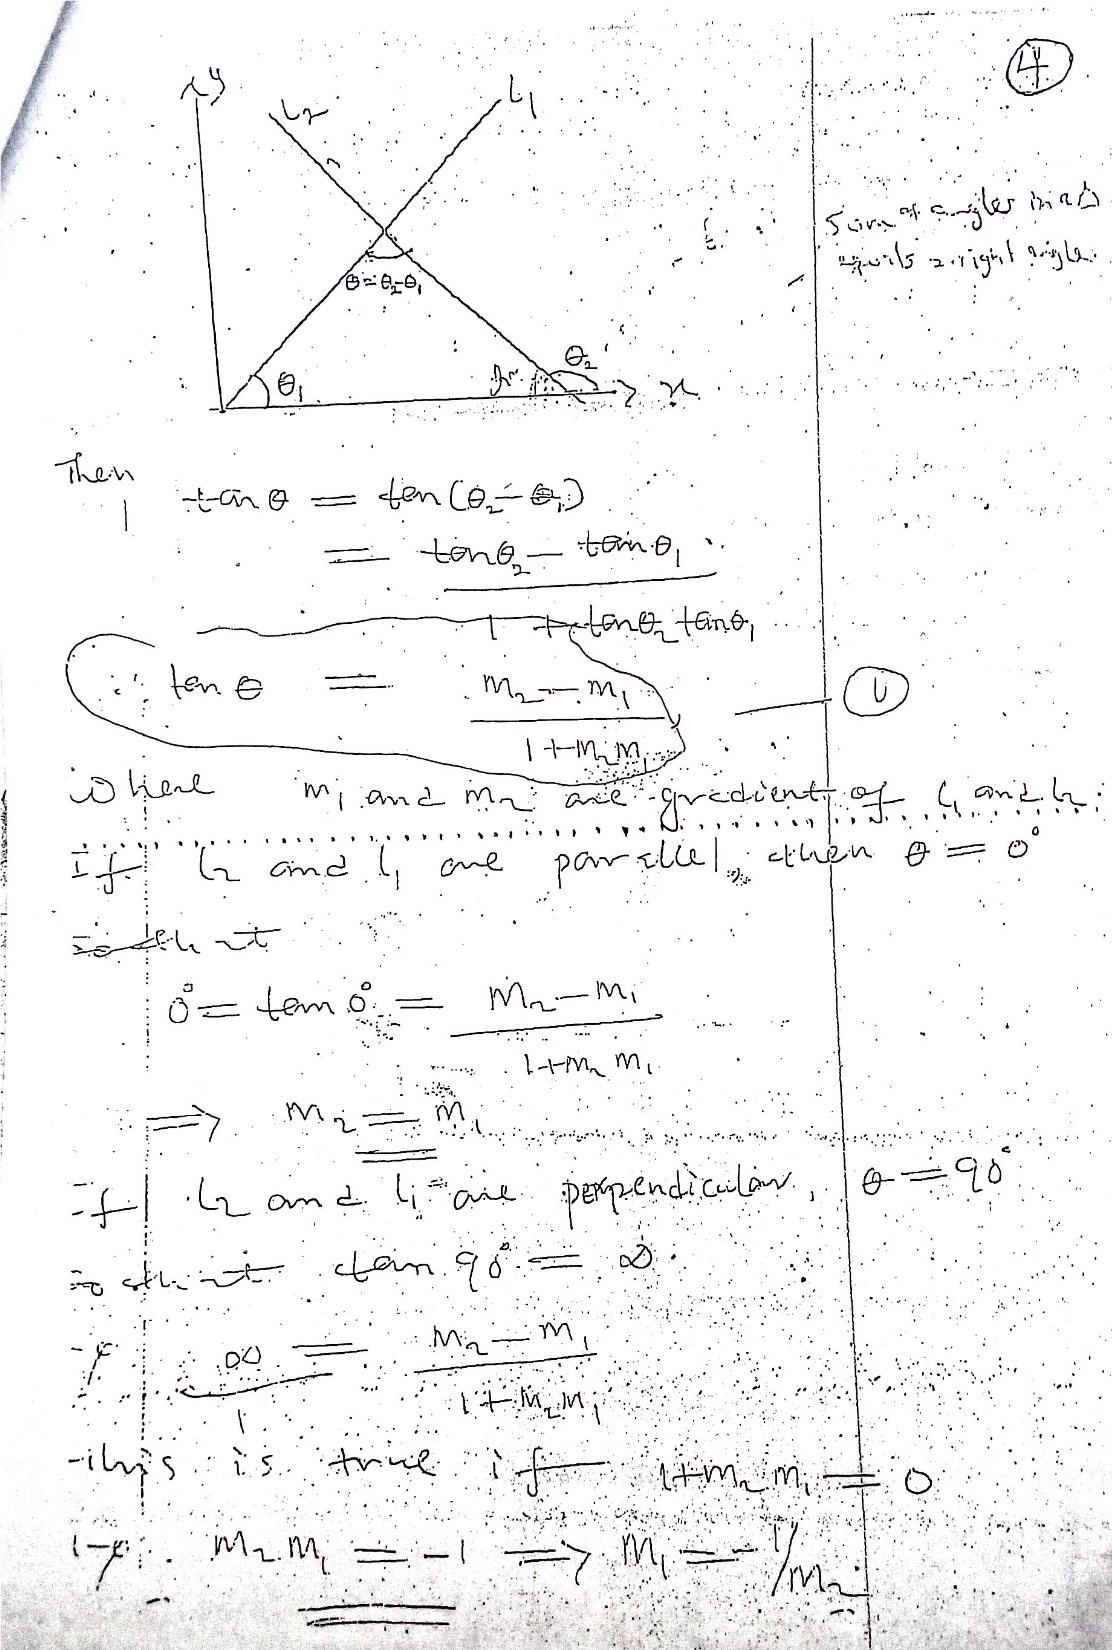 4
y
L2
L1
Sum of angles in a Δ
equals a right angle.
θ = θ₂-θ₁
θ₁
θ₂
x
Then
tan θ = tan (θ₂ - θ₁)
= tanθ₂ - tanθ₁
1 + tanθ₂ tanθ₁
∴ tan θ = m₂ - m₁
1 + m₂m₁
where m₁ and m₂ are gradient of L₁ and L₂.
If L₂ and L₁ are parallel, then θ = 0°
so that
0° = tan 0° = m₂ - m₁
1 + m₂ m₁
⇒ m₂ = m₁
If L₂ and L₁ are perpendicular, θ = 90°
so that tan 90° = ∞.
∞ = m₂ - m₁
1 1 + m₂m₁
this is true if 1 + m₂ m₁ = 0
m₂ m₁ = -1 ⇒ m₁ = -1/m₂